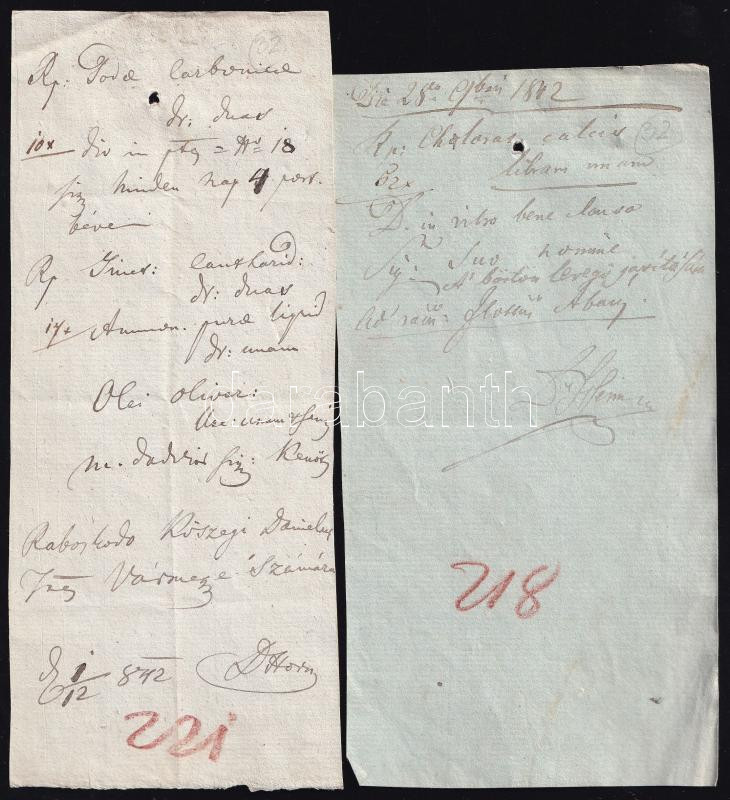 32
Rp: Sodae Carbonicae
dr: duas
10x div in ptes = No = 18
sig minden nap 4 port.
bévenni
Rp Tinct: cantharid:
dr: duas
17x Ammon. purae liquid
dr: unam
Olei olivar:
Unc: unam
m. sig: Kenőcs
Raboskodo Kőszegi Daniel
Vármegye Számára
d 1/12 842
Dr Horn
221
Die 28va 9bris 1842
32
Rp: Chloras calcis
52x libram unam
D. in vitro bene clauso
Sig. Suo nomine
A' börtön levegő javítására
Ad rat: Abauj.
218
darabanth